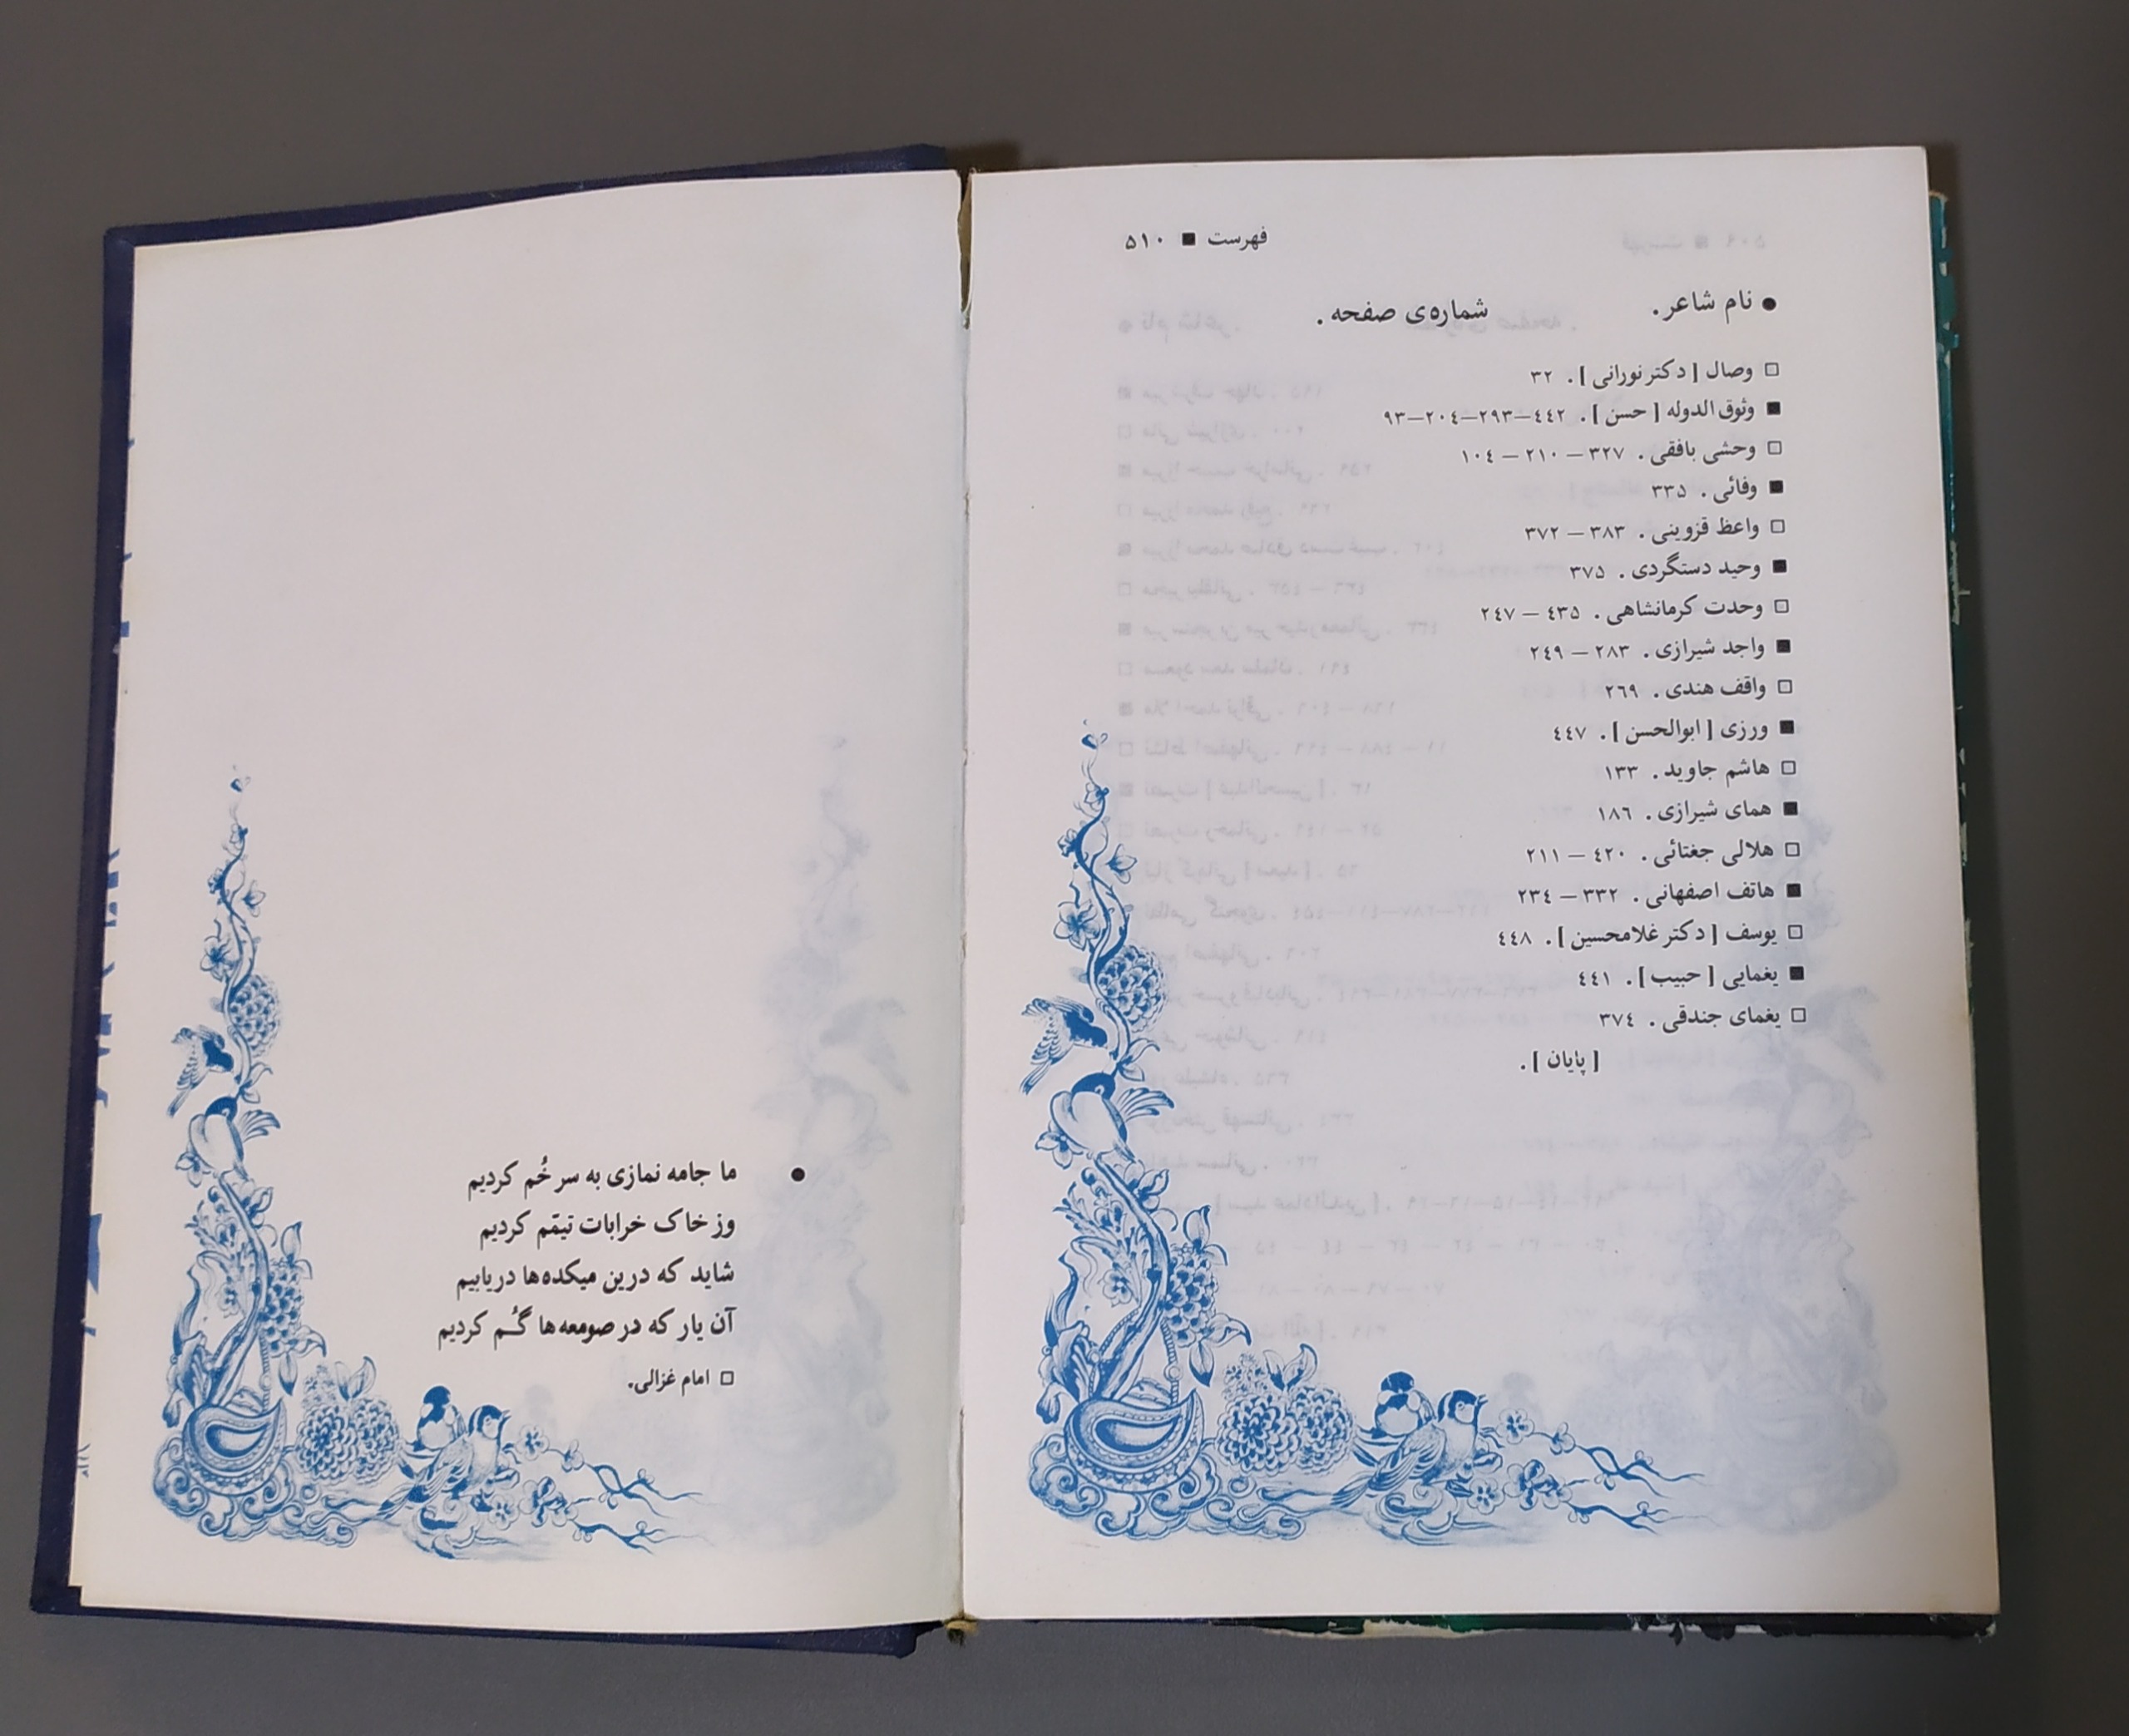 فهرست ■ ۵۱۰
● نام شاعر. شماره‌ی صفحه.
□ وصال [دکتر نورانی]. ۳۲
■ وثوق الدوله [حسن]. ۴۴۲—۲۹۳—۲۰۴—۹۳
□ وحشی بافقی. ۳۲۷ — ۲۱۰ — ۱۰۴
■ وفائی. ۳۳۵
□ واعظ قزوینی. ۳۸۳ — ۳۷۲
■ وحید دستگردی. ۳۷۵
□ وحدت کرمانشاهی. ۴۳۵ — ۲۴۷
■ واجد شیرازی. ۲۸۳ — ۲۴۹
□ واقف هندی. ۲۶۹
■ ورزی [ابوالحسن]. ۴۴۷
□ هاشم جاوید. ۱۳۳
■ همای شیرازی. ۱۸۶
□ هلالی جغتائی. ۴۲۰ — ۲۱۱
■ هاتف اصفهانی. ۳۳۲ — ۲۳۴
□ یوسف [دکتر غلامحسین]. ۴۴۸
■ یغمایی [حبیب]. ۴۴۱
□ یغمای جندقی. ۳۷۴
[پایان].
● ما جامه نمازی به سر خُم کردیم
وز خاک خرابات تیمّم کردیم
شاید که درین میکده‌ها دریابیم
آن یار که در صومعه‌ها گُـم کردیم
□ امام غزالی.